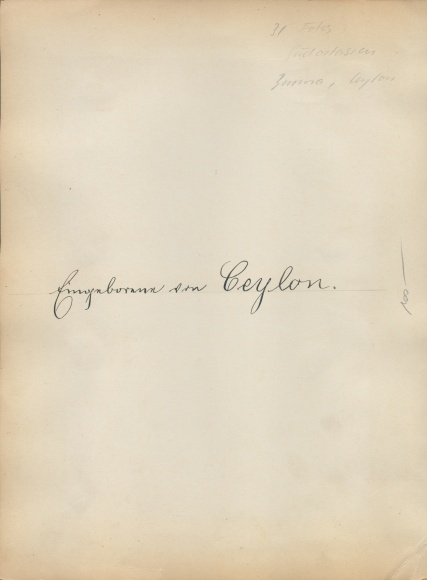 31 Fotos
Südostasien
, Ceylon
Eingeborene von Ceylon.